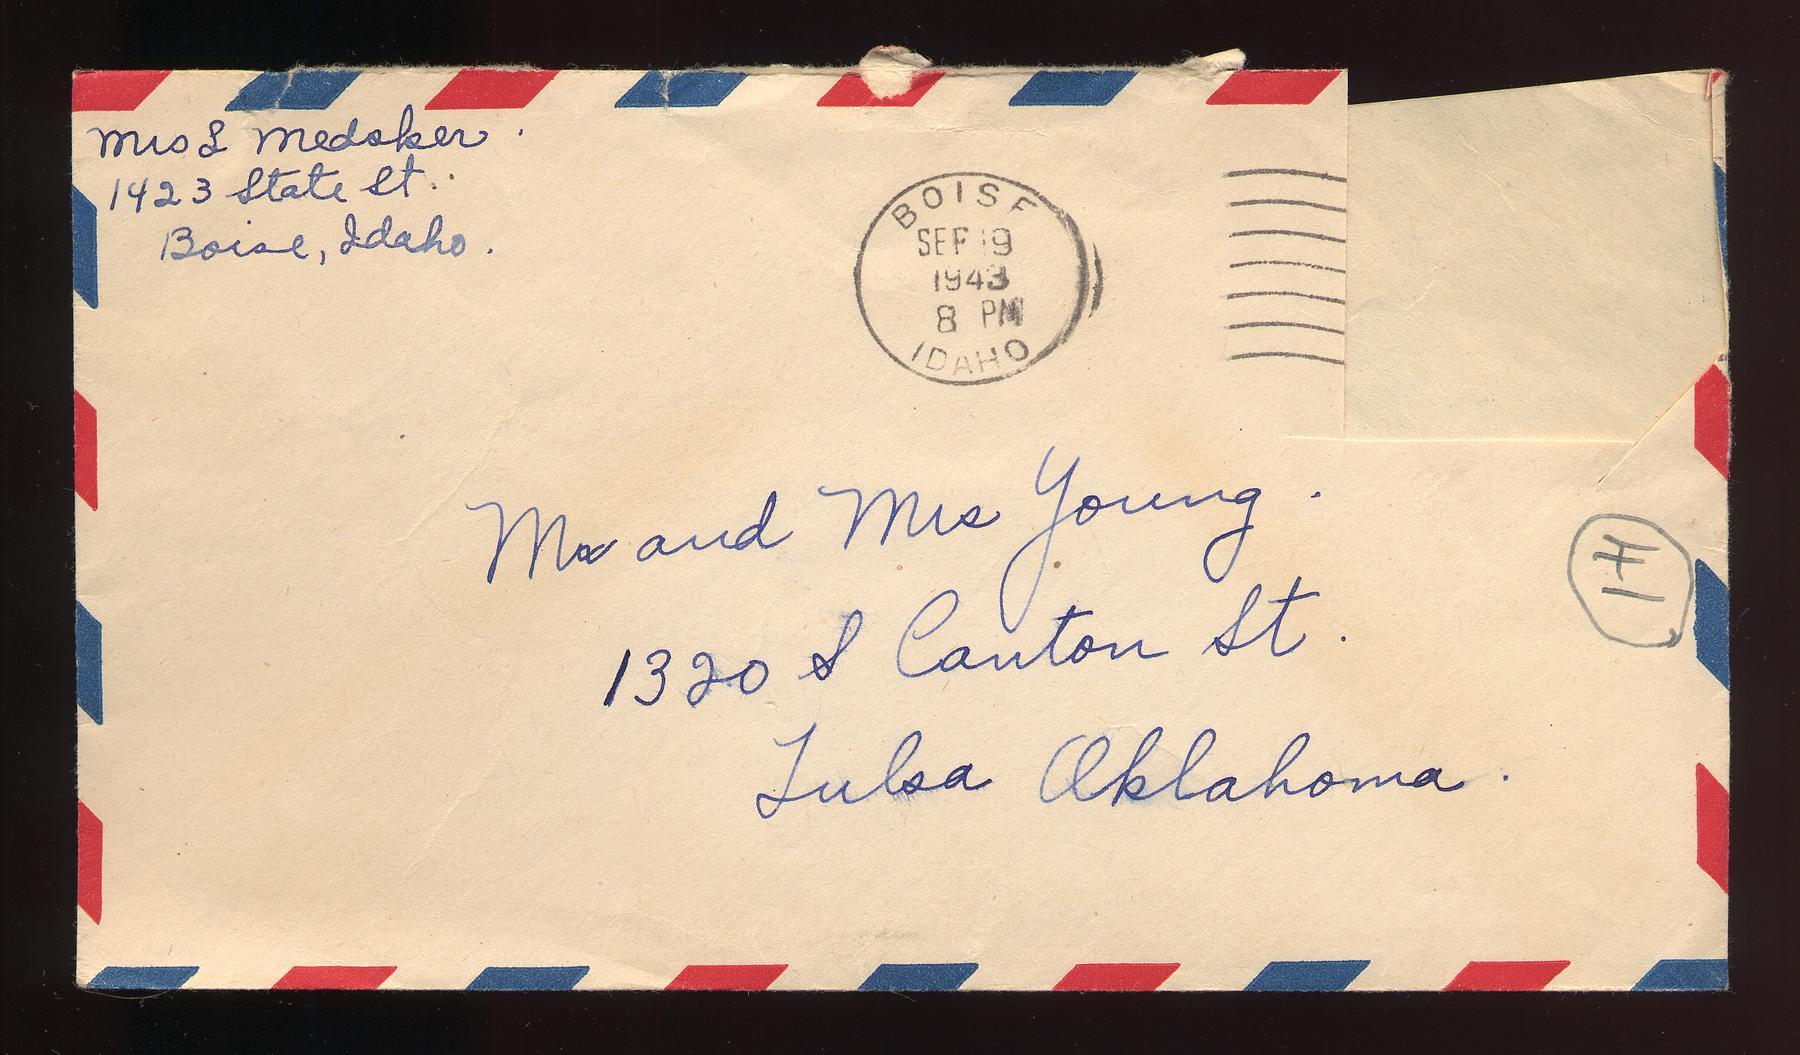 Mrs L Medsker.
1423 State St.
Boise, Idaho.
BOISE
SEP 19
1943
8 PM
IDAHO
Mr and Mrs Young.
1320 S Canton St.
Tulsa Oklahoma.